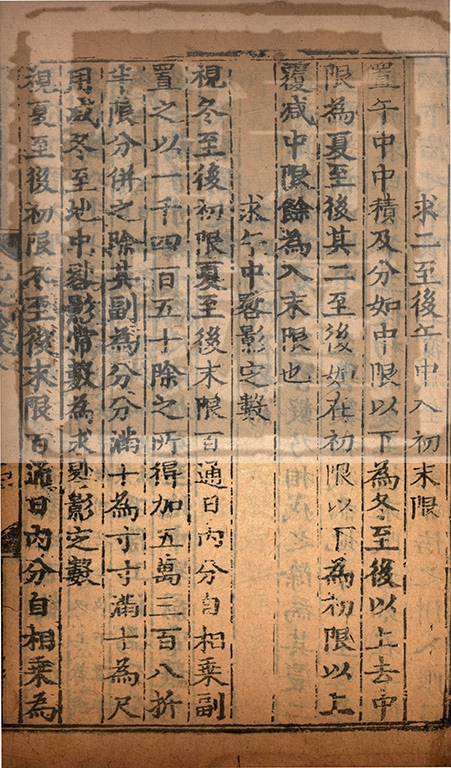 求二至後午中入初末限
置午中中積及分如中限以下為冬至後以上去中
限為夏至後其二至後如在初限以下為初限以上
覆减中限餘為入末限也
求午中晷影定數
視冬至後初限夏至後末限百通日內分自相乘副
置之以一千四百五十除之所得加五萬三百八折
半限分併之除其副為分分滿十為寸寸滿十為尺
用减冬至地中晷影常數為求晷影定數
視夏至後初限冬至後末限百通日內分自相乘為